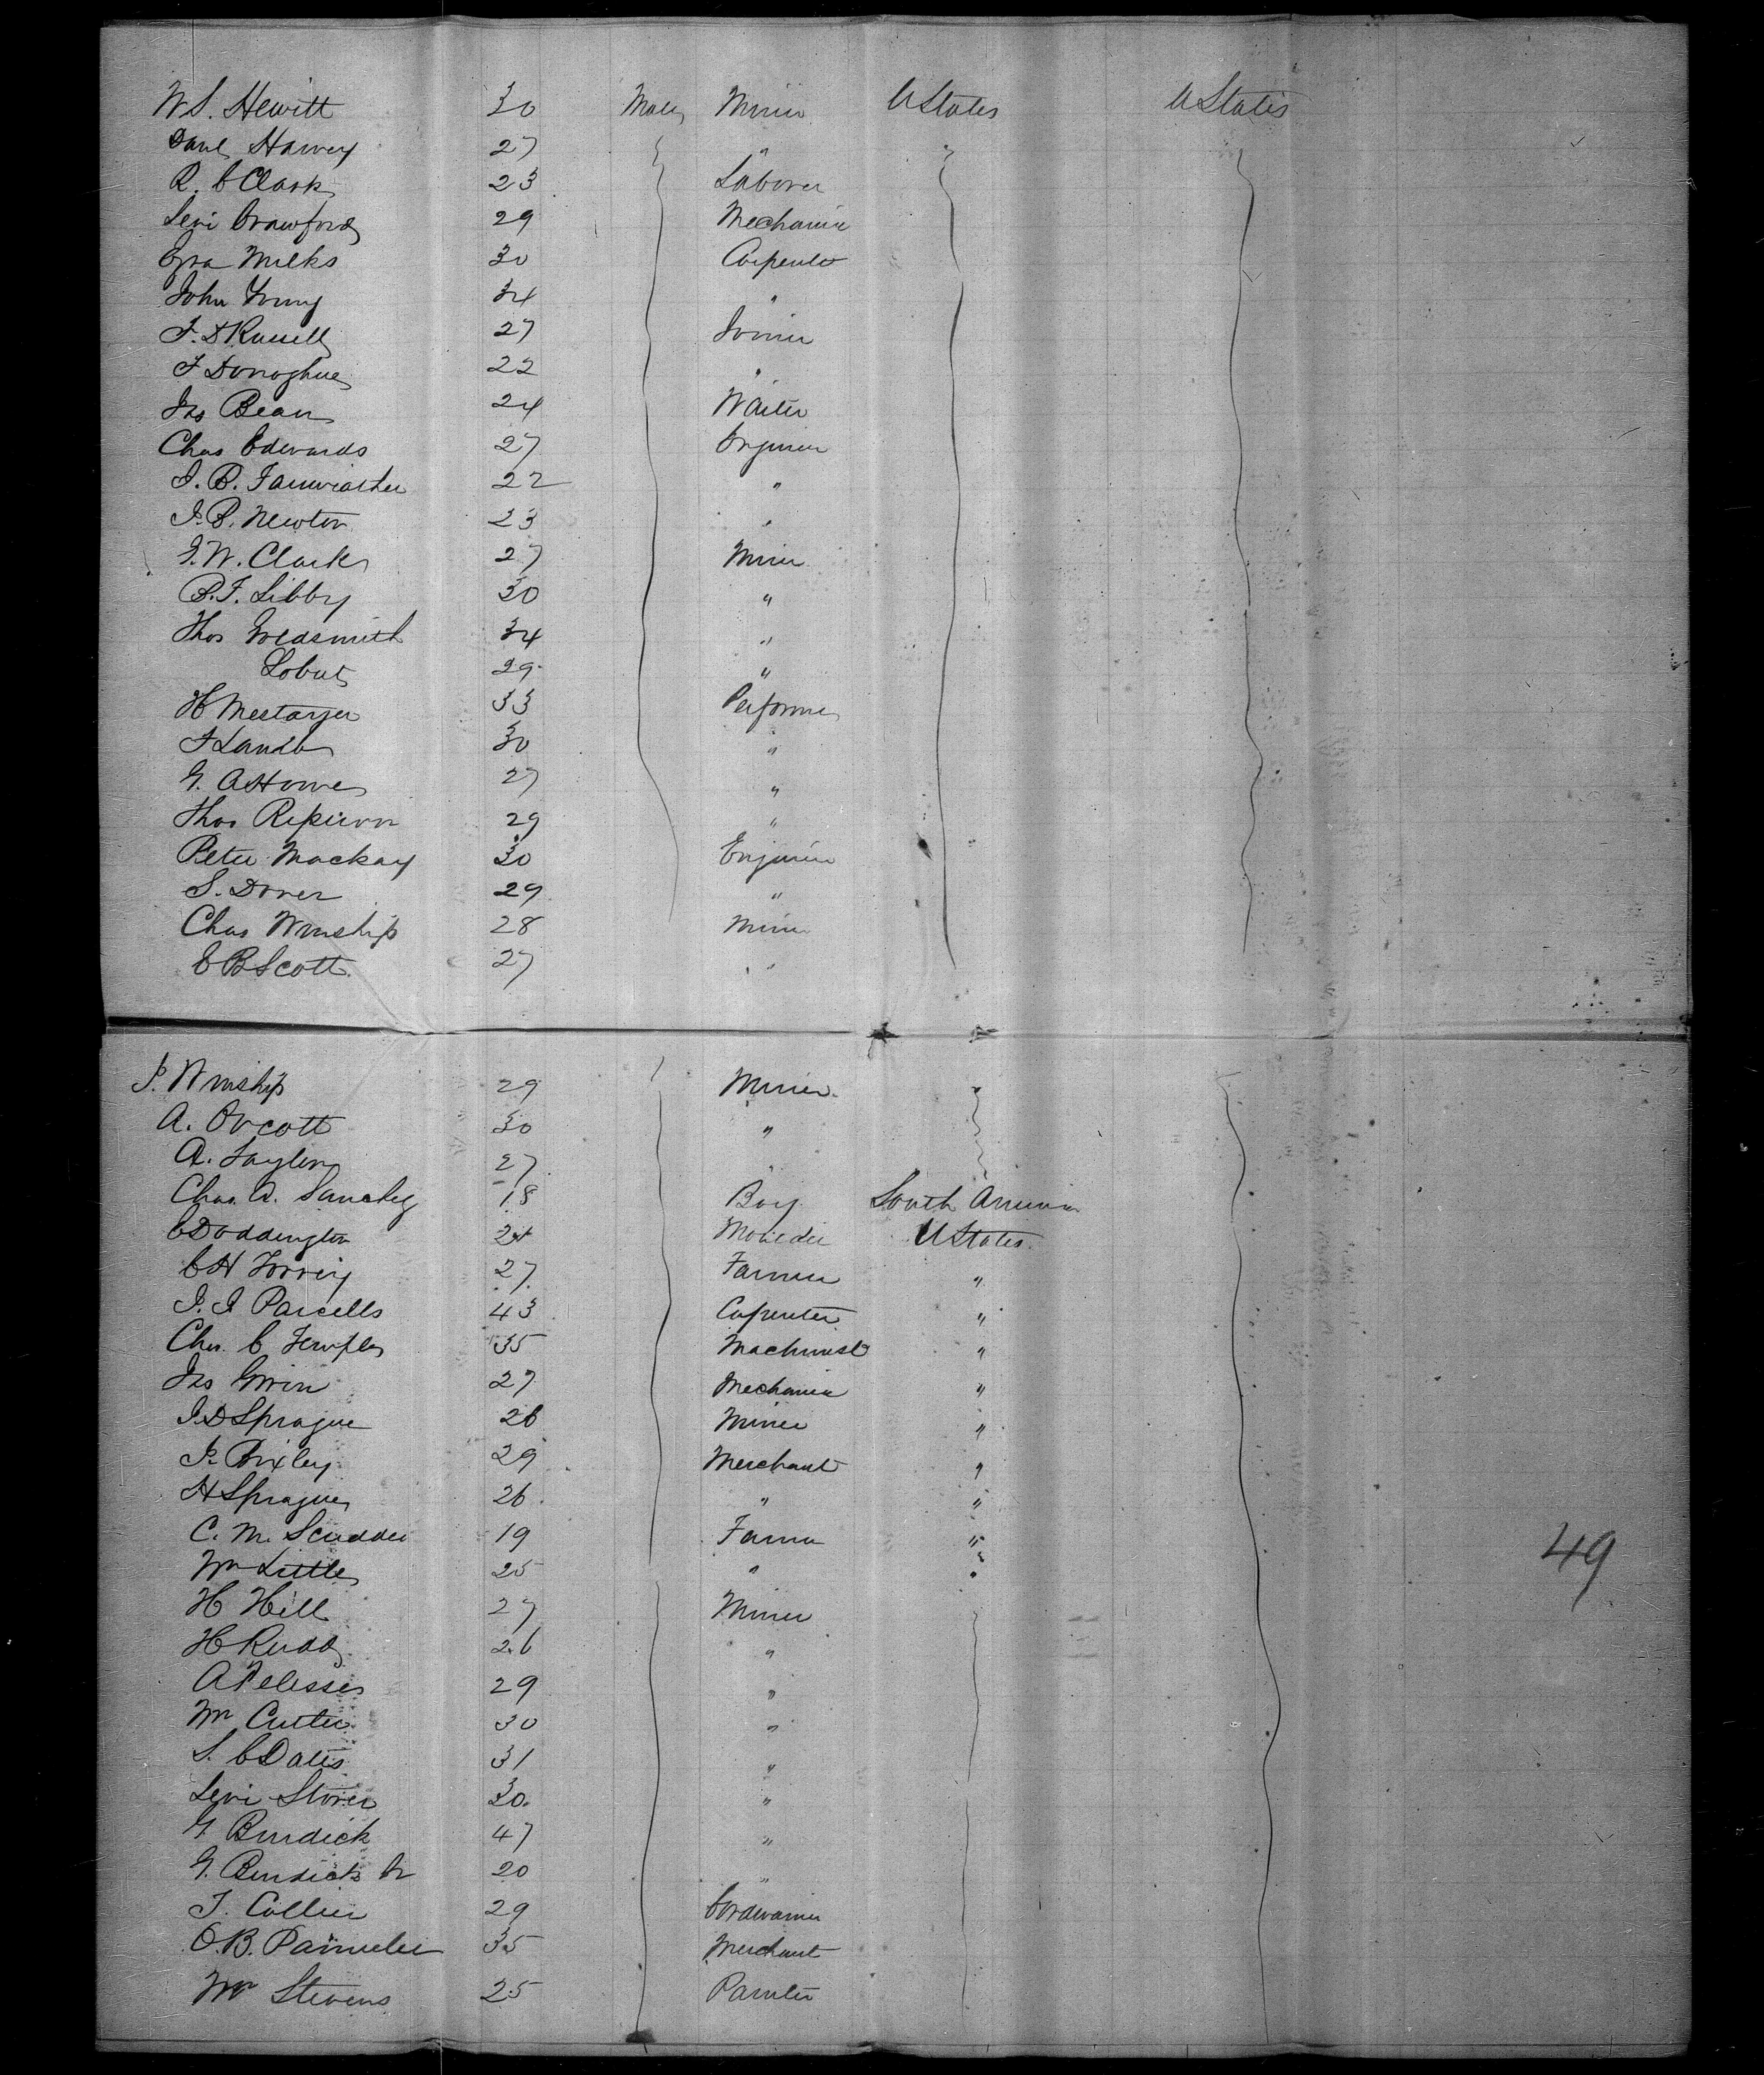 W S. Hewitt 30 Male Miner U States U States
Danl Harvey 27 "
R. C Clark 23 Laborer
Levi Crawford 29 Mechanic
Ezra Milks 30 Carpenter
John Young 34 "
F. D Russell 27 Joiner
F Donoghue 22 "
Jas Bean 24 Waiter
Chas Edwards 27 Engineer
J. B. Fairweather 22 "
J. B. Newton 23 "
J. W. Clark 27 Miner
B. F. Libby 30 "
Thos Goldsmith 34 "
29 "
H Mestayer 33 Performer
30 "
G. A Howe 27 "
Thos 29 "
Peter Mackay 30 Engineer
S. Dover 29 "
Chas Winship 28 Miner
E B Scott 27 "
J. Winship 29 Miner "
A. Orcott 30 "
A. Taylor 27 "
Chas. A. Sanchez 18 Boy South America
C Doddington 24 Moulder U States
C H 27 Farmer "
J. J Parcells 43 Carpenter "
Chas. C Temple 35 Machinist "
Jas 27 Mechanic "
J. D Sprague 26 Miner "
J. Bixley 29 Merchant "
H Sprague 26 " "
C. M. Scudder 19 Farmer "
Wm Little 25 " "
H Hill 27 Miner
H Rudd 26 "
A 29 "
Wm Cutter 30 "
S. C Dates 31 "
Levi Storer 30 "
G Burdick 47 "
G. Burdick Jr 20 "
T. Collier 29 Cordwainer
O. B. Parmelee 35 Merchant
Wm Stevens 25 Painter
49